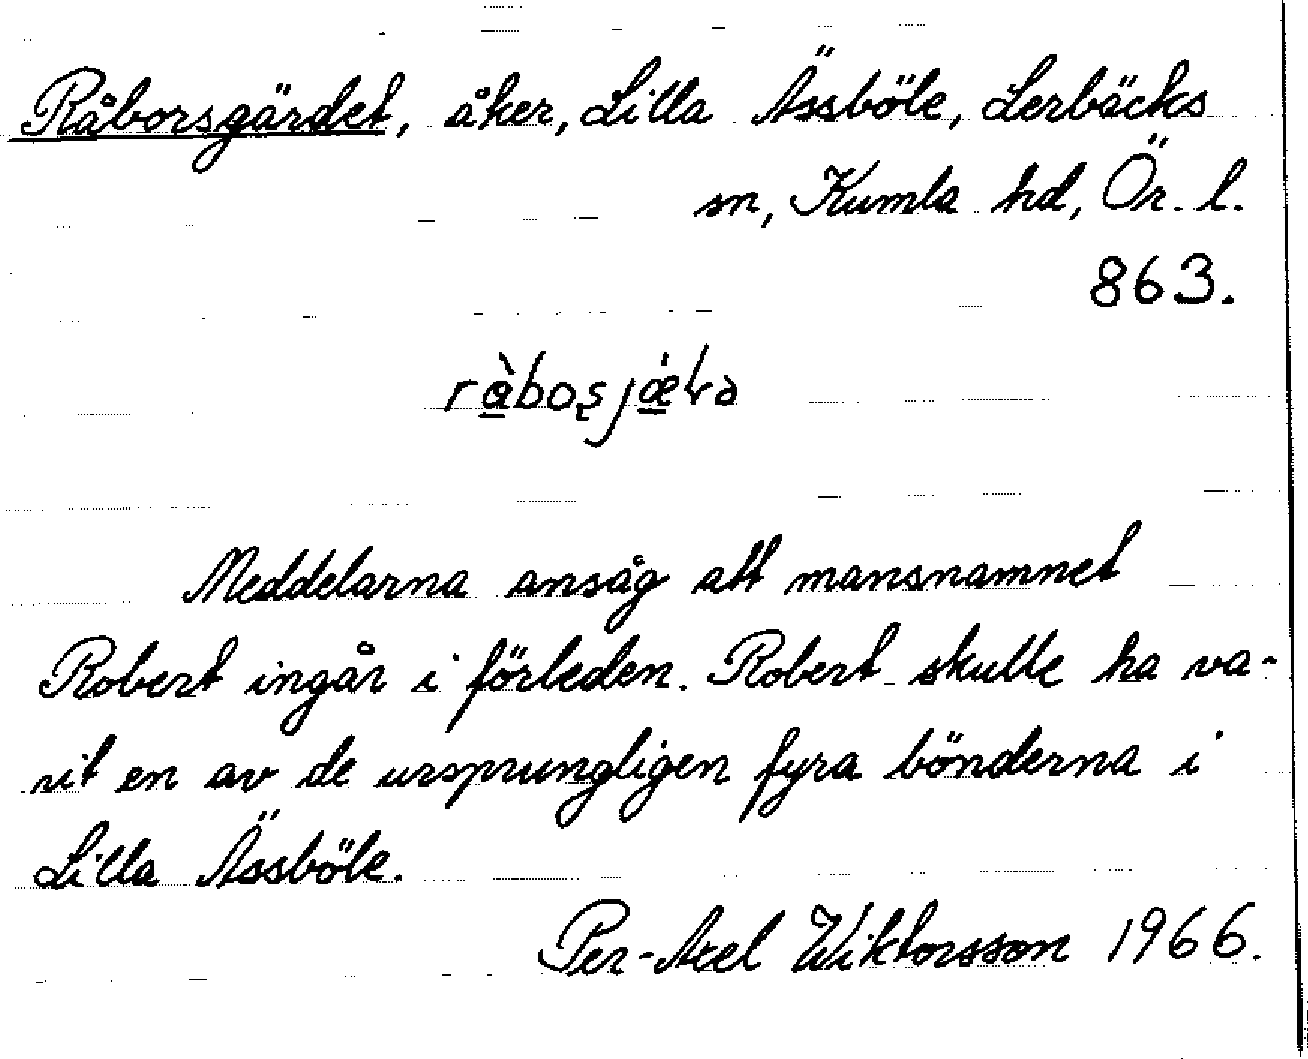 Råborsgärdet, åker, Lilla Ässböle, Lerbäcks
sn, Kumla hd, Ör. l.
863.
Meddelarna ansåg att mansnamnet
Robert ingår i förleden. Robert skulle ha va-
rit en av de ursprungligen fyra bönderna i
Lilla Ässböle.
Per-Axel Wiktorsson 1966.